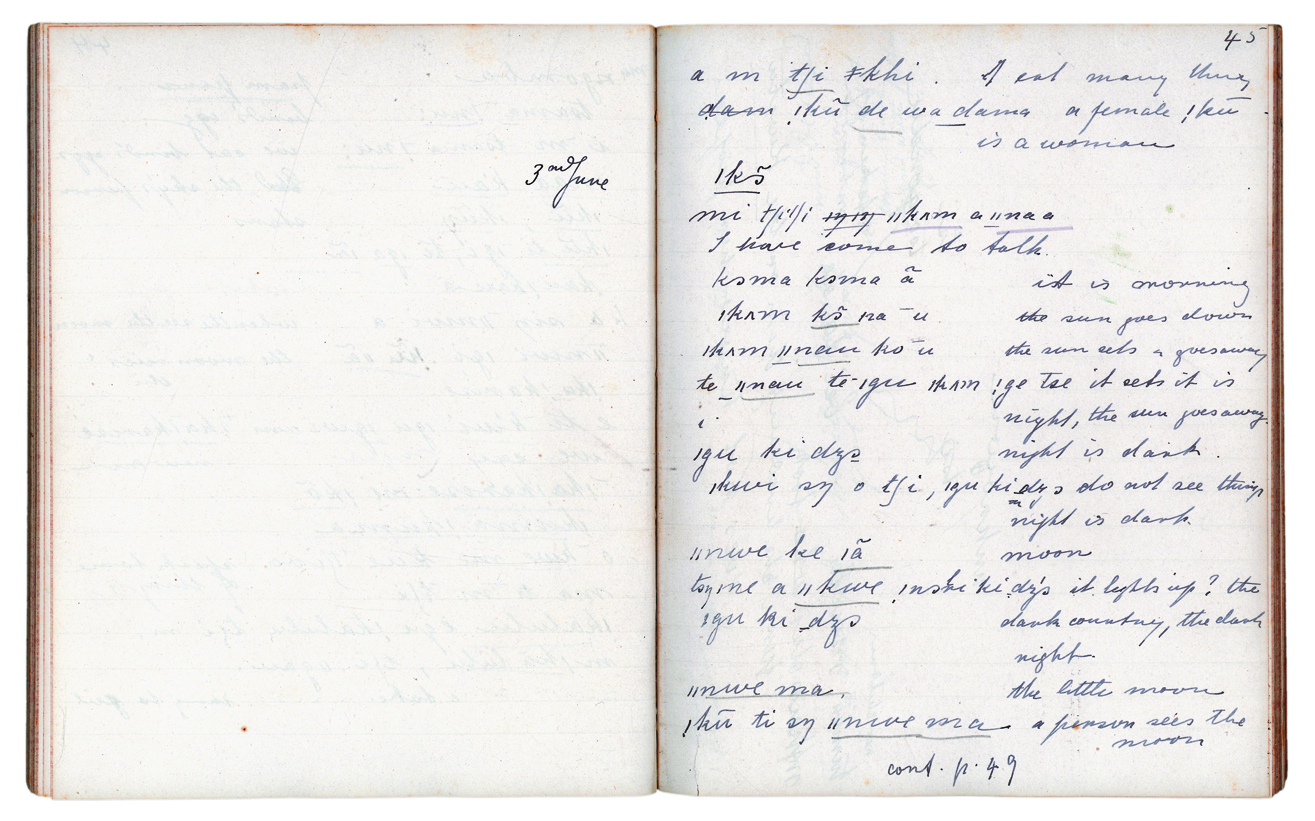 3rd June
45
a m tʃi ǂkhi . I eat many things
dam ǀkū de wa dama a female ǀkū
is a woman
ǀkɔ̃
mi tʃi'ʃi ǁkʌm a ǁnaa
I have come to talk.
kɔma kɔma ã it is morning
ǀkʌm kɔ̃ ra ū the sun goes down
ǀkʌm ǁnau ko u the sun sets a goes away
te ǁnau te ǀgu ǀkʌm ǃge tse it sets it is
i night, the sun goes away.
ǀgu ki dzɔ night is dark.
ǀkwi sŋ o tʃi, ǀgu ki dzɔ do not see things
night is dark.
ǁnwe ke ǀã moon
tsŋme a ǁkwe ki dzɔ it lights up? the
ǀgu ki dzɔ dark country, the dark
night.
ǁnwe ma. the little moon
ǀkū ti sŋ ǁnwe ma a person sees the
moon
cont. p. 49